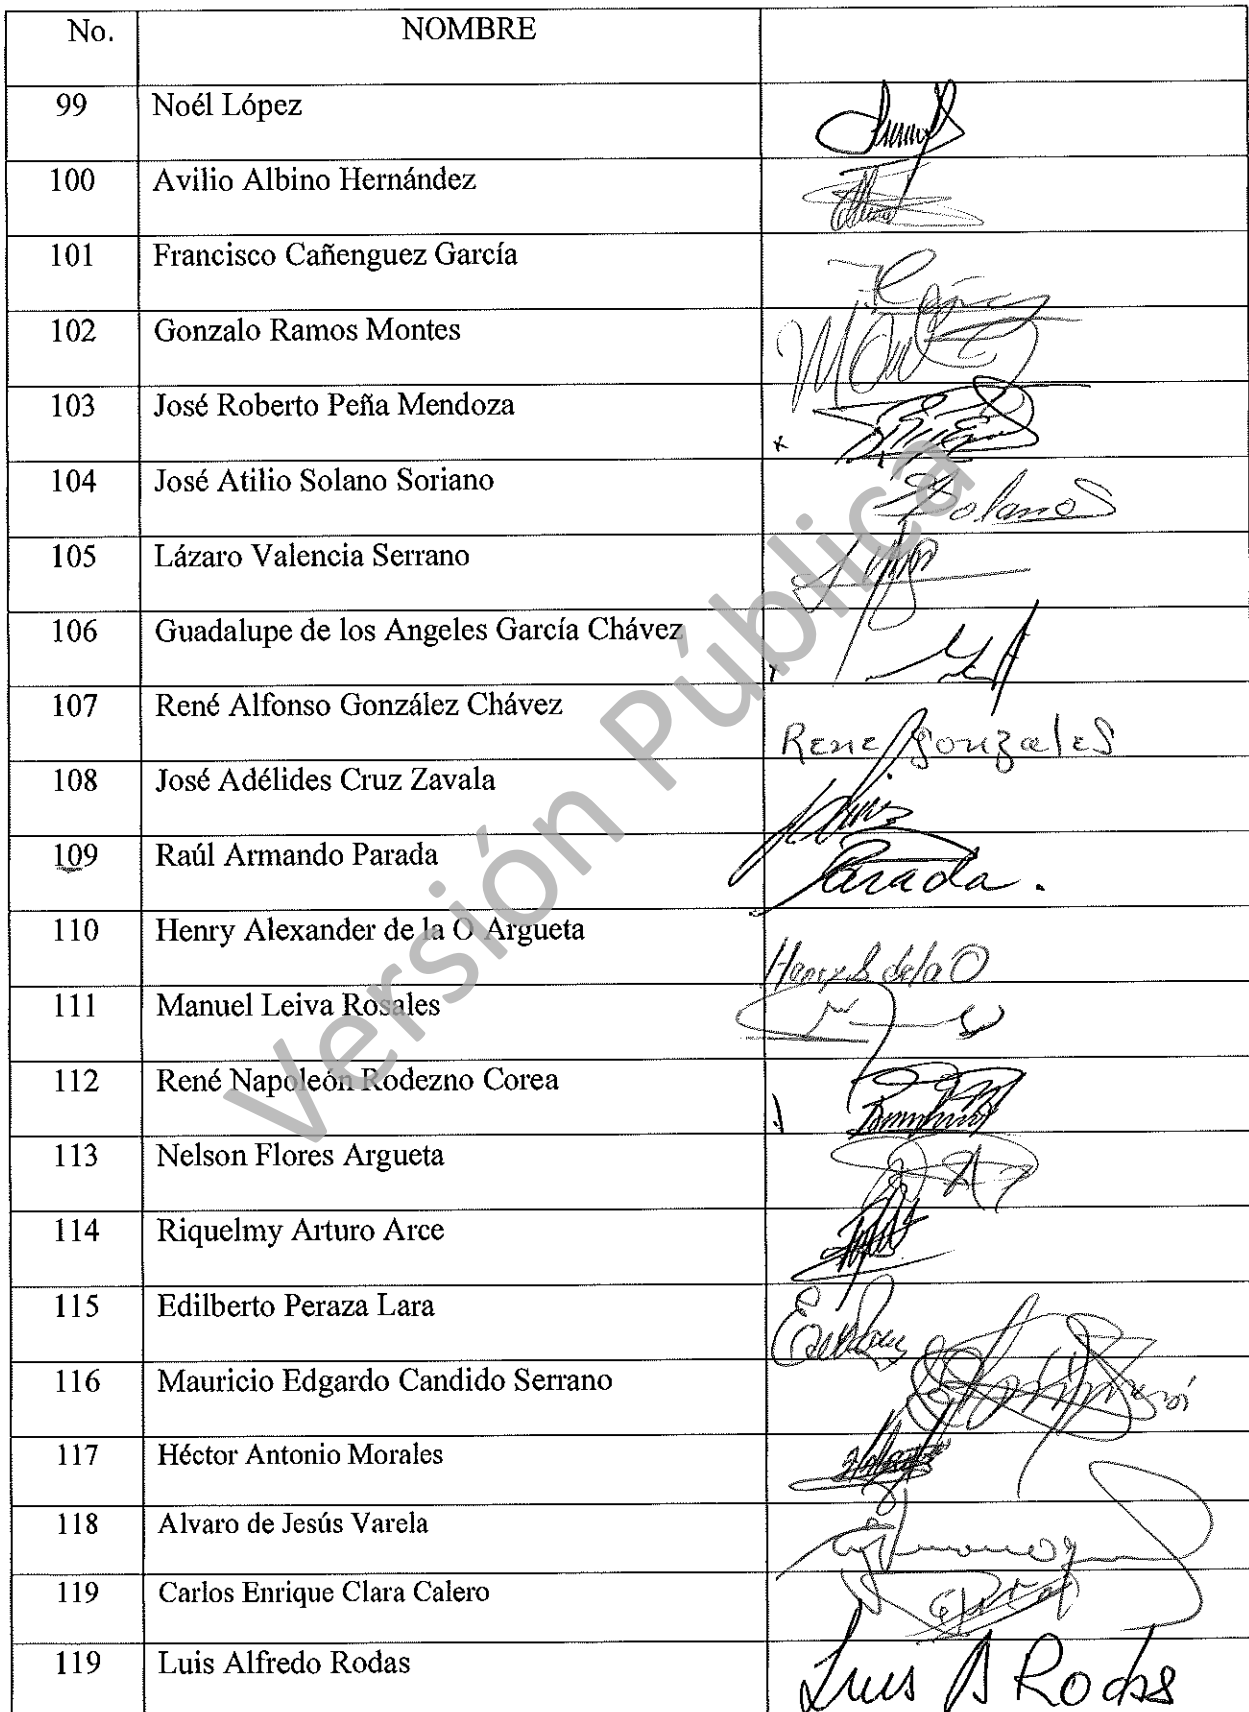 No. NOMBRE
99 Noél López
100 Avilio Albino Hernández
101 Francisco Cañenguez García
102 Gonzalo Ramos Montes
103 José Roberto Peña Mendoza
104 José Atilio Solano Soriano
Solano
105 Lázaro Valencia Serrano
106 Guadalupe de los Angeles García Chávez
107 René Alfonso González Chávez
Rene Gonzales
108 José Adélides Cruz Zavala
109 Raúl Armando Parada
Parada.
110 Henry Alexander de la O Argueta
de la O
111 Manuel Leiva Rosales
112 René Napoleón Rodezno Corea
113 Nelson Flores Argueta
114 Riquelmy Arturo Arce
115 Edilberto Peraza Lara
116 Mauricio Edgardo Candido Serrano
117 Héctor Antonio Morales
118 Alvaro de Jesús Varela
119 Carlos Enrique Clara Calero
119 Luis Alfredo Rodas
Luis A Rodas
Versión Pública